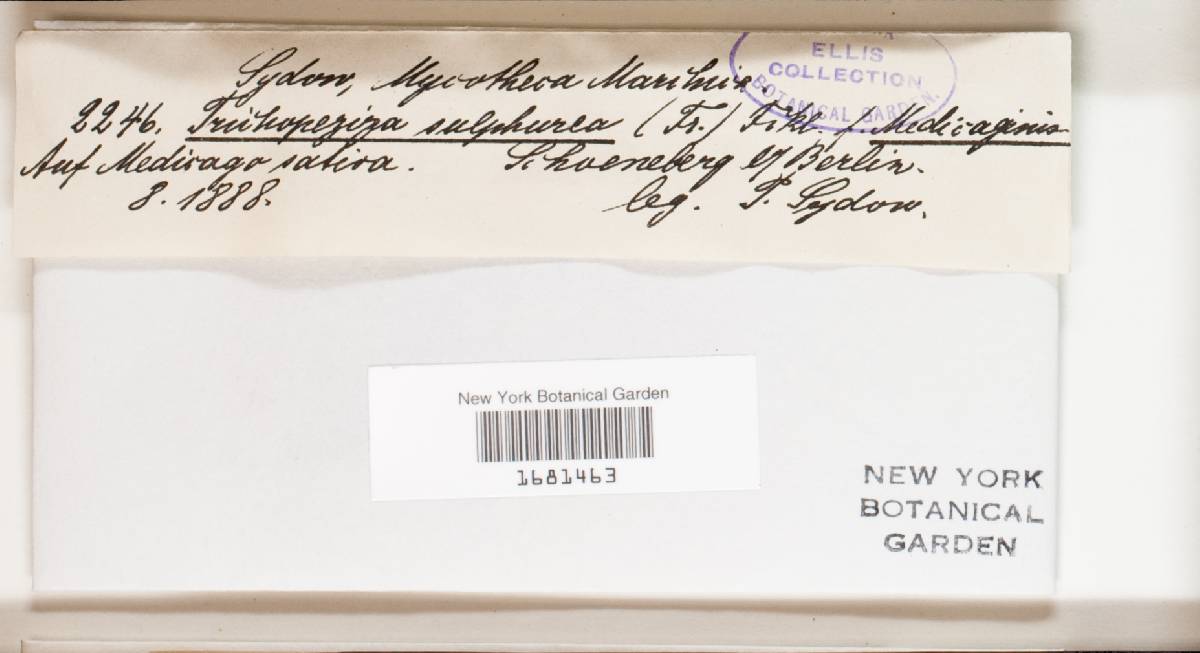 Sydow, Mycotheca Marchica.
ELLIS
COLLECTION
BOTANICAL GARDEN.
2246. Trichopeziza sulphurea (Fr.) Fckl. f. Medicaginis
Auf Medicago sativa. Schoeneberg b/Berlin.
8. 1888. leg. P. Sydow.
New York Botanical Garden
1681463
NEW YORK
BOTANICAL
GARDEN